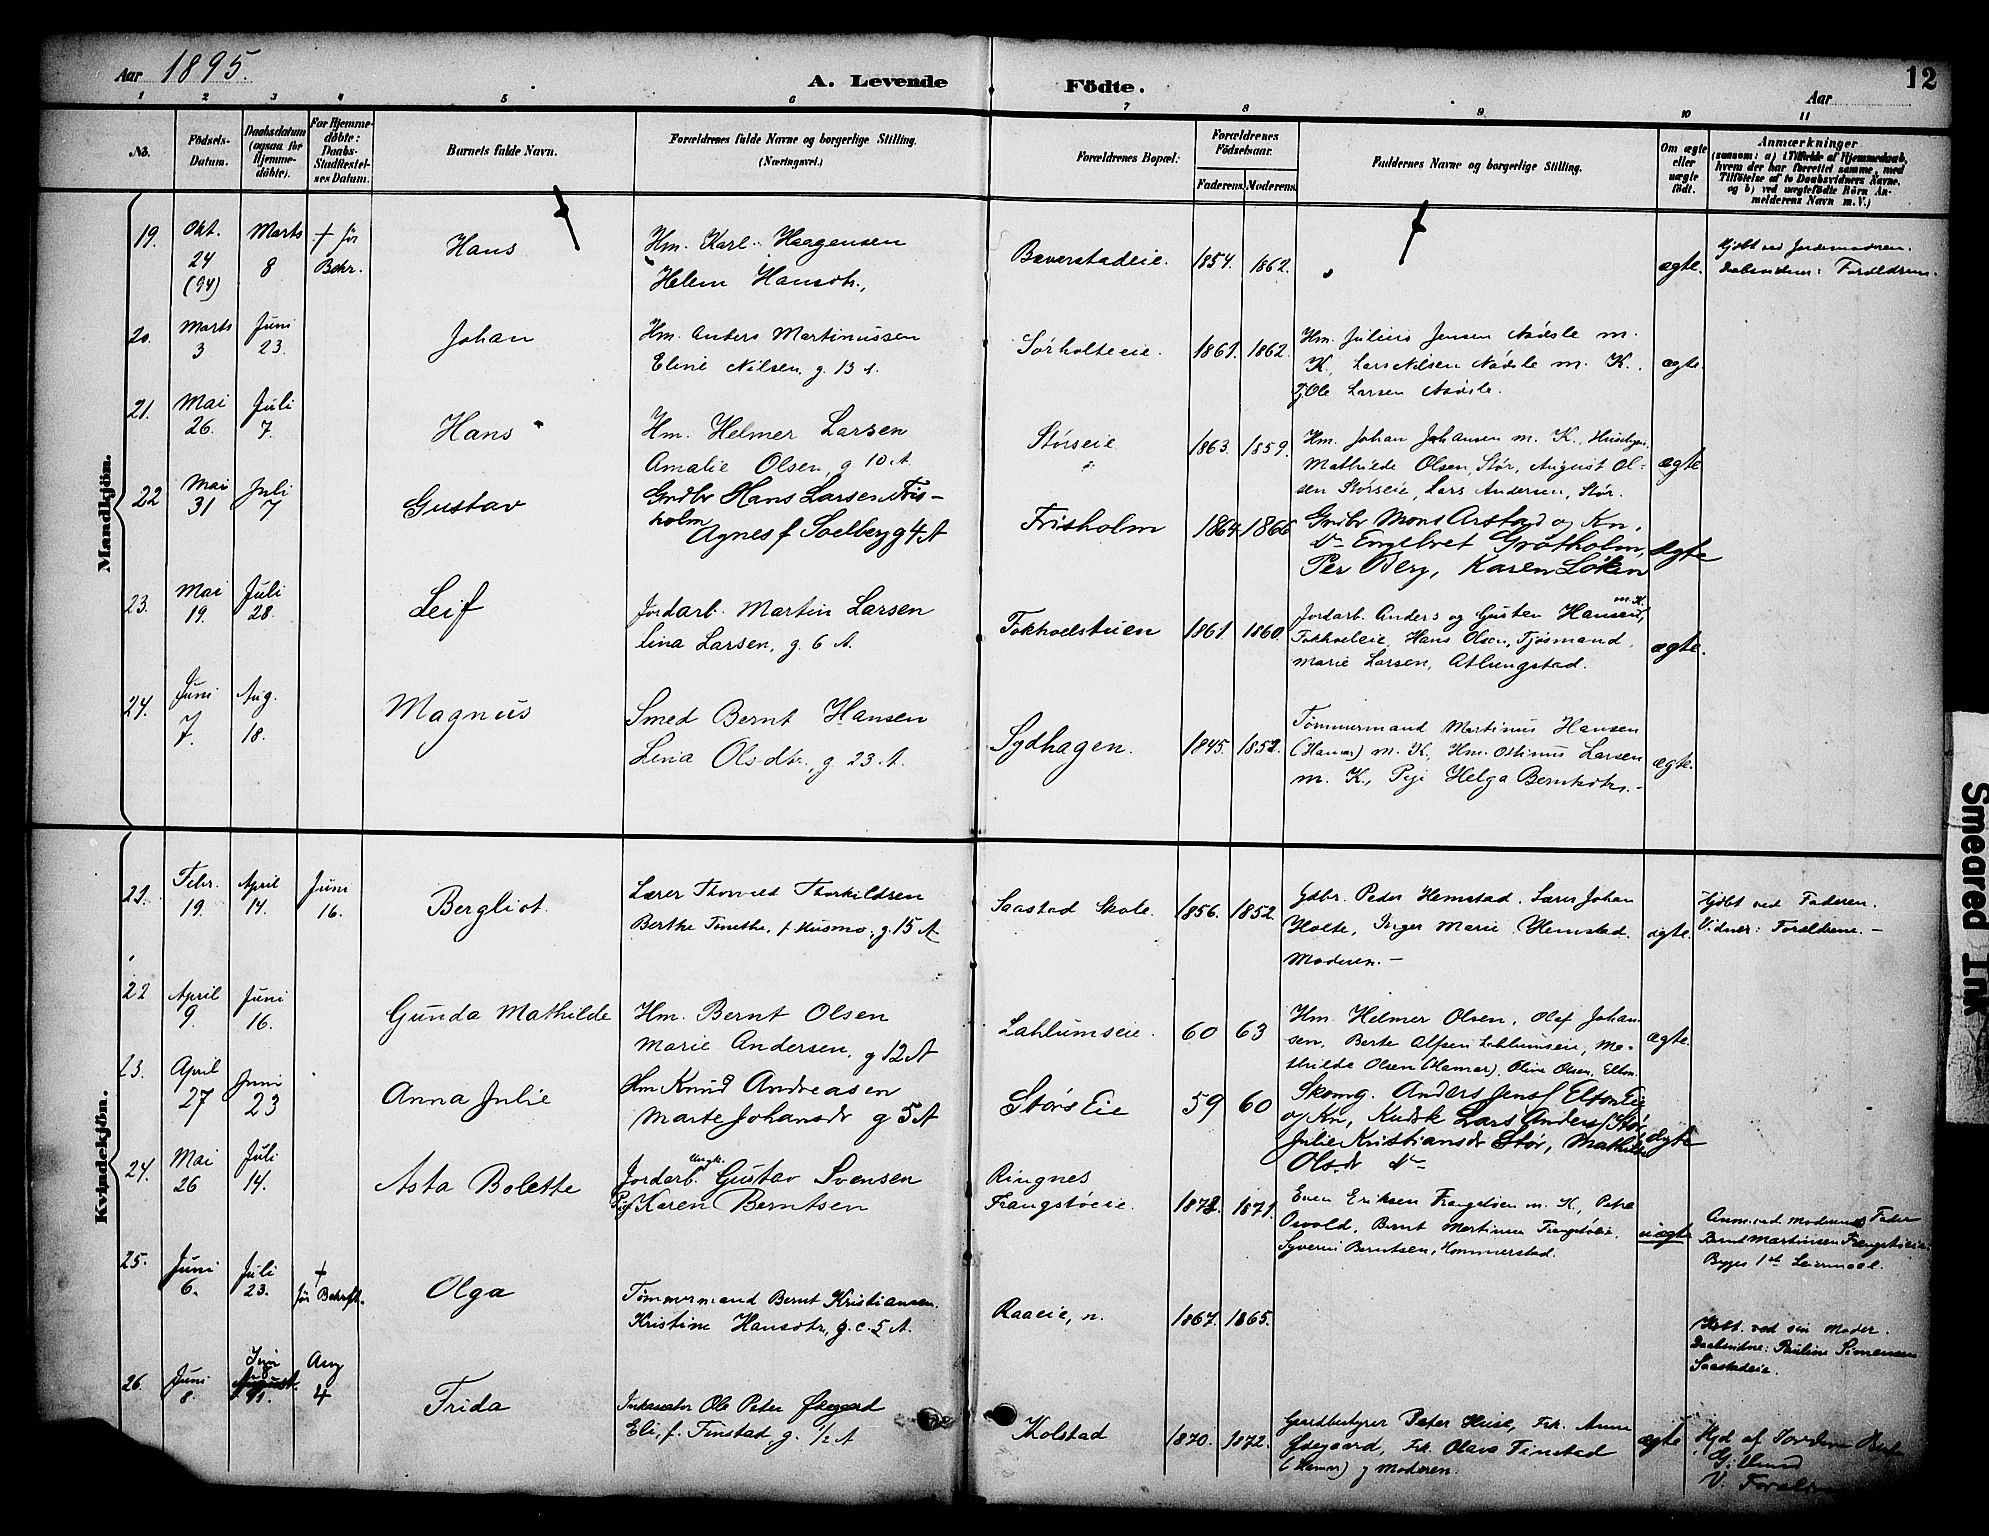 Aar 1895.
A. Levende Födte.
Aar
12
1 2 3 4 5 6 7 8 9 10 11
No.
Födsels-Datum.
Daabsdatum (ogsaa for Hjemme-döbte).
For Hjemme-döbte: Daabs-Stadfæstel-ses Datum.
Barnets fulde Navn.
Forældrenes fulde Navne og borgerlige Stilling. (Næringsvei.)
Forældrenes Bopæl.
Forældrenes Födselsaar.
Faderens. Moderens.
Faddernes Navne og borgerlige Stilling.
Om ægte eller uægte födt.
Anmærkninger
(saasom: a) i Tilfælde af Hjemmedaab,
hvem der har forrettet samme, med
Tilföielse af to Daabsvidners Navne,
og b) ved uægtefödte Börn An-
melderens Navn m. V.)
Mandkjön.
19. Okt. 24 (94) Marts 8 † før Bekr. Hans
Hm. Karl Haagensen
Helene Hansdtr.,
Bæverstadeie. 1854. 1862. ægte.
Hjdbt ved Jordemoderen.
Daabsvidner: Forældrene.
20. Marts 3 Juni 23. Johan
Hm. Anders Martinussen
Eline Nilsen, g. 13 A.
Sørholteeie. 1861. 1862.
Hm. Julius Jensen Nødsle m.
K., Lars Nilsen Nødsle m. K.
Ole Larsen Nødsle.
ægte.
21. Mai 26. Juli 7. Hans
Hm. Helmer Larsen
Amalie Olsen, g 10 A.
Størseie 1863. 1859.
Hm. Johan Johansen m. K.,
Mathilde Olsen, Stør, August Ol-
sen Størseie, Lars Andersen, Stør.
ægte
22 Mai 31 Juli 7 Gustav
Grdbr Hans Larsen Fris-
holm
Agnes f. Solberg g 4 A
Frisholm 1864. 1866
Grdbr Mons Arstad og Kn,
Engebret Grøtholm,
Per Berg, Karen Løken
ægte
23. Mai 19. Juli 28. Leif
Jordarb. Martin Larsen
Lina Larsen, g. 6 A.
Tokhoelstuen 1861. 1860.
Jordarb. Anders og Gusten Hansen, m. K.
Tokhoeleie, Hans Olsen, Tjøsmand,
Marie Larsen, Atlungstad.
ægte.
24. Juni 7. Aug. 18. Magnus
Smed Bernt Hansen
Lina Olsdtr., g 23 A.
Sydhagen. 1845. 1852.
Tømmermand Martinus Hansen
(Hamar) m. K., Hm. Ostinus Larsen
m. K., Pige Helga Berntsdtr.-
ægte.
Kvindekjön.
21. Febr. 19. April 14. Juni 16. Bergliot
Lærer Thorvald Thorkildsen
Berthe Tonethe, f. Husmo, g. 15 A
Saastad Skole. 1856. 1852.
Gdbr. Peder Hemstad. Lærer Johan
Holte, Inger Marie Hemstad.
Moderen.-
ægte.
Hjdbt ved Faderen.
Vidner: Forældrene.-
22 April 9. Juni 16. Gunda Mathilde
Hm. Bernt Olsen
Marie Andersen, g 12 A
Lahlumseie. 60 63
Hm. Helmer Olsen, Olaf Johan
sen, Berte Alfsen Lahlumseie, Ma-
thilde Olsen (Hamar), Oline Olsen, Elton.
ægte.
23. April 27 Juni 23 Anna Julie
Hm Knud Andreasen
Marte Johansdr g 5 A
Størs Eie 59 60
Skomg. Anders Jensf Elton Eie
og Kn, Kudsk Lars Anders/ Stør,
Julie Kristiansdr Stør, Mathilde
Olsdr
ægte
24. Mai 26 Juli 14. Asta Bolette
Jordarb. Ungk. Gustav Svensen
Pig Karen Berntsen
Ringnes
Frangstøeie. 1872. 1871.
Even Eriksen Frangstøen m. K., Petra
Osvold, Bernt Martinsen Frangstøeie,
Syverin Berntsen, Hommerstad.
uægte
Anm. ved Moderens Fader
Bernt Martinsen Frangstøeie
Begges 1ste Leiermaal.
25. Juni 6. Juli 23. † før Bekræft. Olga
Tømmermand Bernt Kristiansen.
Kristine Hansdtr, g. c. 5 A.
Raaeie, n. 1867. 1865.
Hjdbt. ved sin Moder.
Daabsvidne: Pauline Simensen
Saastadeie.
26. Juni 8. Juni 11. Aug 4 Frida
Inkassator Ole Peter Ødegaard
Eli, f. Finstad g. 1/2 A
Kolstad 1870. 1872.
Gaardbestyrer Peter Huse, Frk. Anne
Ødegaard, Frk. Olava Finstad
(Hamar) og Moderen.
ægte
Hjd af Jordem
V. Forældr
Smeared Ink